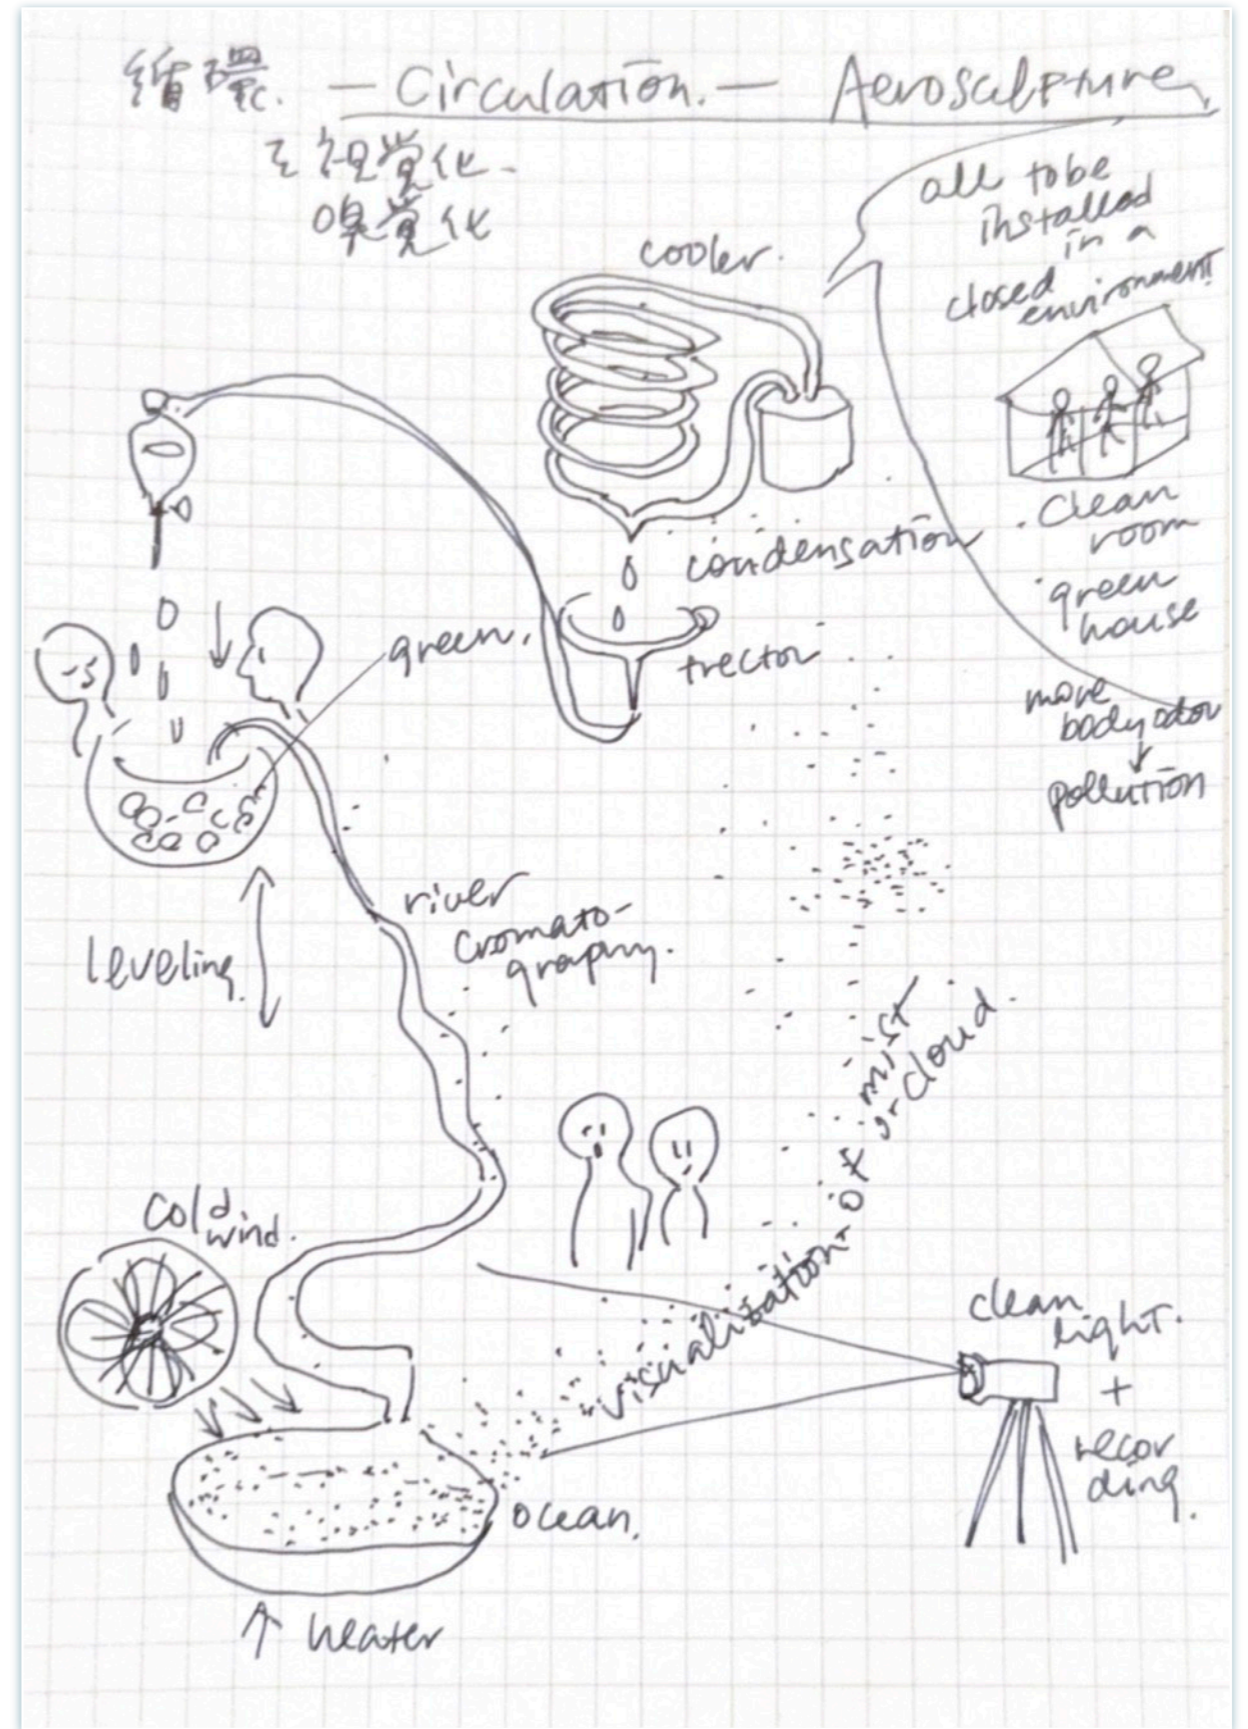 循環. — Circulation. — Aerosculpture.
を視覚化.
嗅覚化
all to be
installed
in a
closed
environment
cooler.
clean
room
green
house
condensation
green.
trector
more
body odor
↓
pollution
river
cromato-
graphy.
leveling.
mist
or cloud.
visualization of
cold
wind.
clean
light.
+
recor
ding.
ocean.
↑ heater